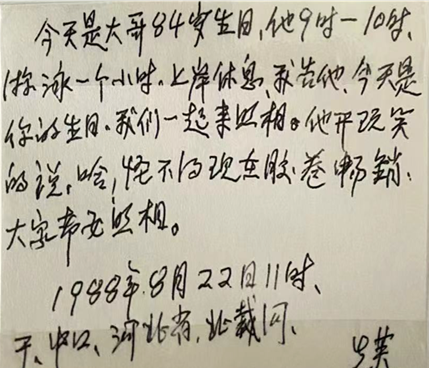 今天是大哥84岁生日,他9时—10时、
游泳一个小时。上岸休息,我告他,今天是
你的生日。我们一起来照相。他开玩笑
的说,哈,怪不得现在胶卷畅銷、
大家都要照相。
1988年.8月22日11时、
于、中口、河北省,北戴河、